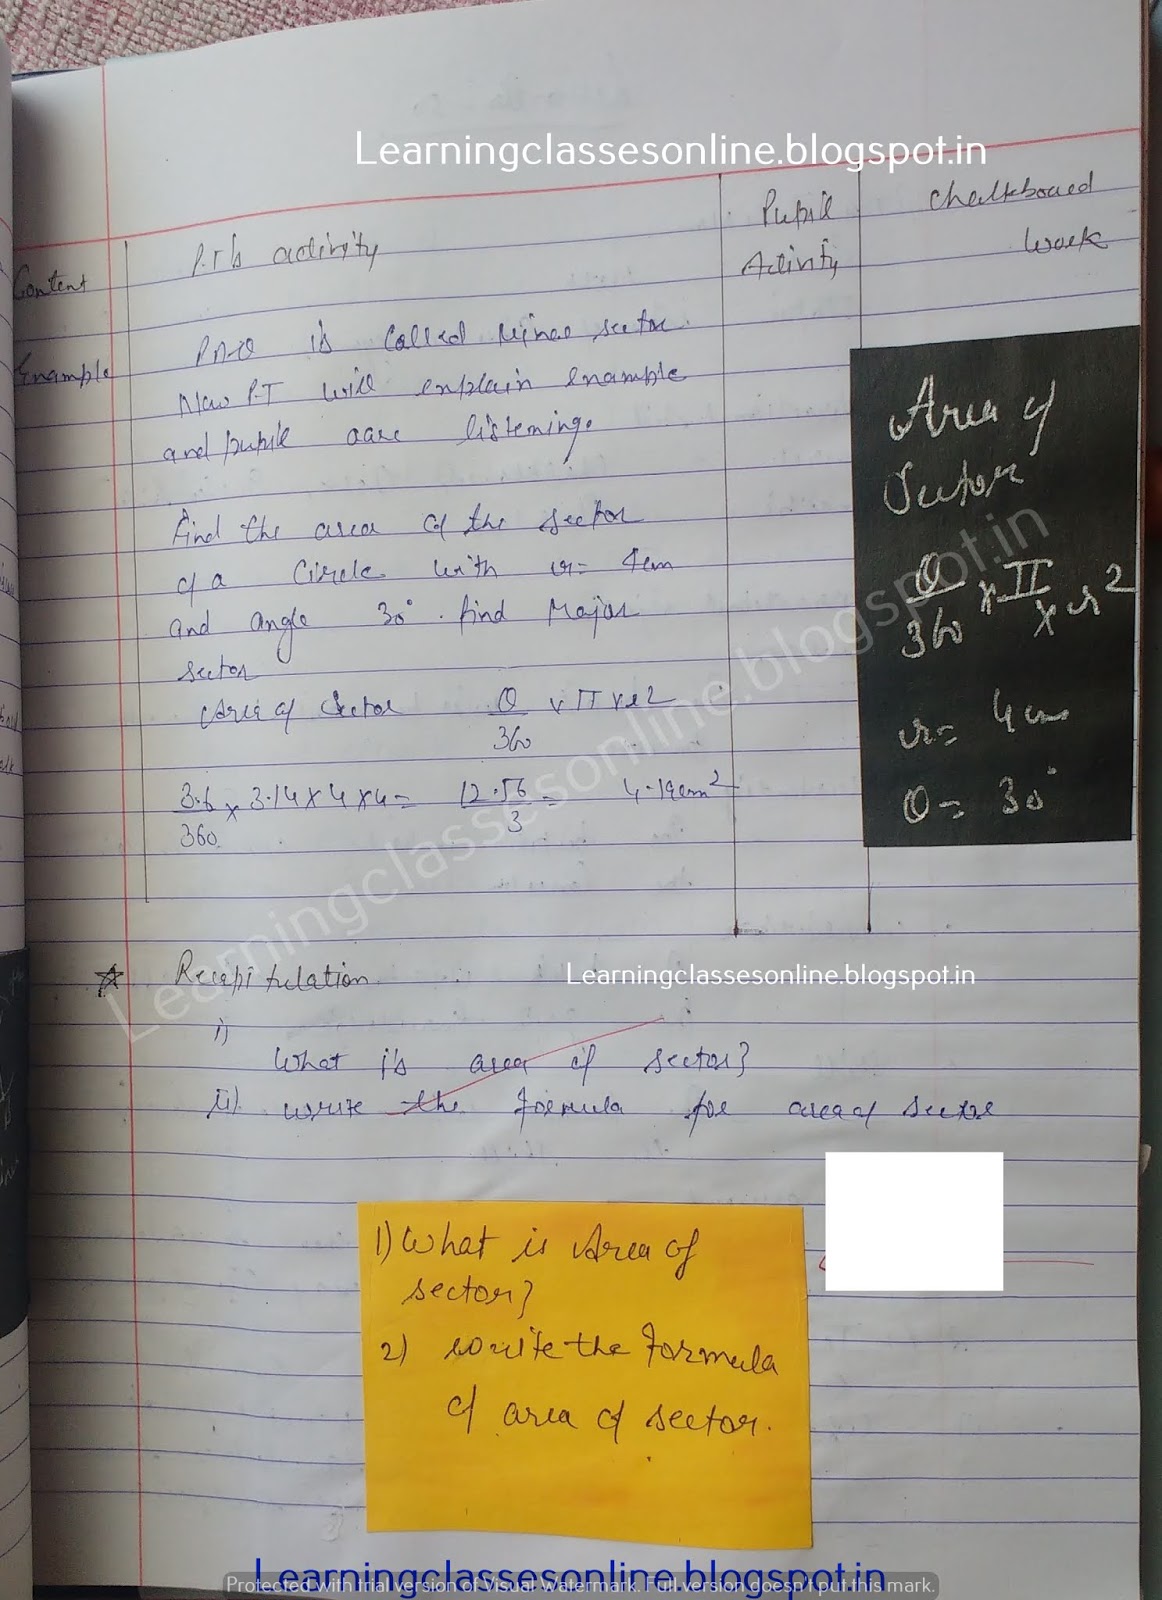 Learningclassesonline.blogspot.in
Content
P.T's activity
Pupil
Activity
Chalkboard
work
Example
is called Minor sector.
Now P.T will explain example
and pupil aare listening.
Find the area of the sector
of a Circle with r= 4cm
and angle 30°. find Major
sector
Area of Sector θ/360 × Π × r2
3.6/360 × 3.14 × 4 × 4 = 12.56/3 = 4.19cm2
Area of
Sector
θ/360 × Π × r2
r= 4cm
θ= 30°
Learningclassesonline.blogspot.in
Recapitulation
Learningclassesonline.blogspot.in
i)
What is area of sector?
ii) write the formula for area of sector
1) What is Area of
sector?
2) write the formula
of area of sector.
Learningclassesonline.blogspot.in
Protected with trial version of Visual Watermark. Full version doesn't put this mark.